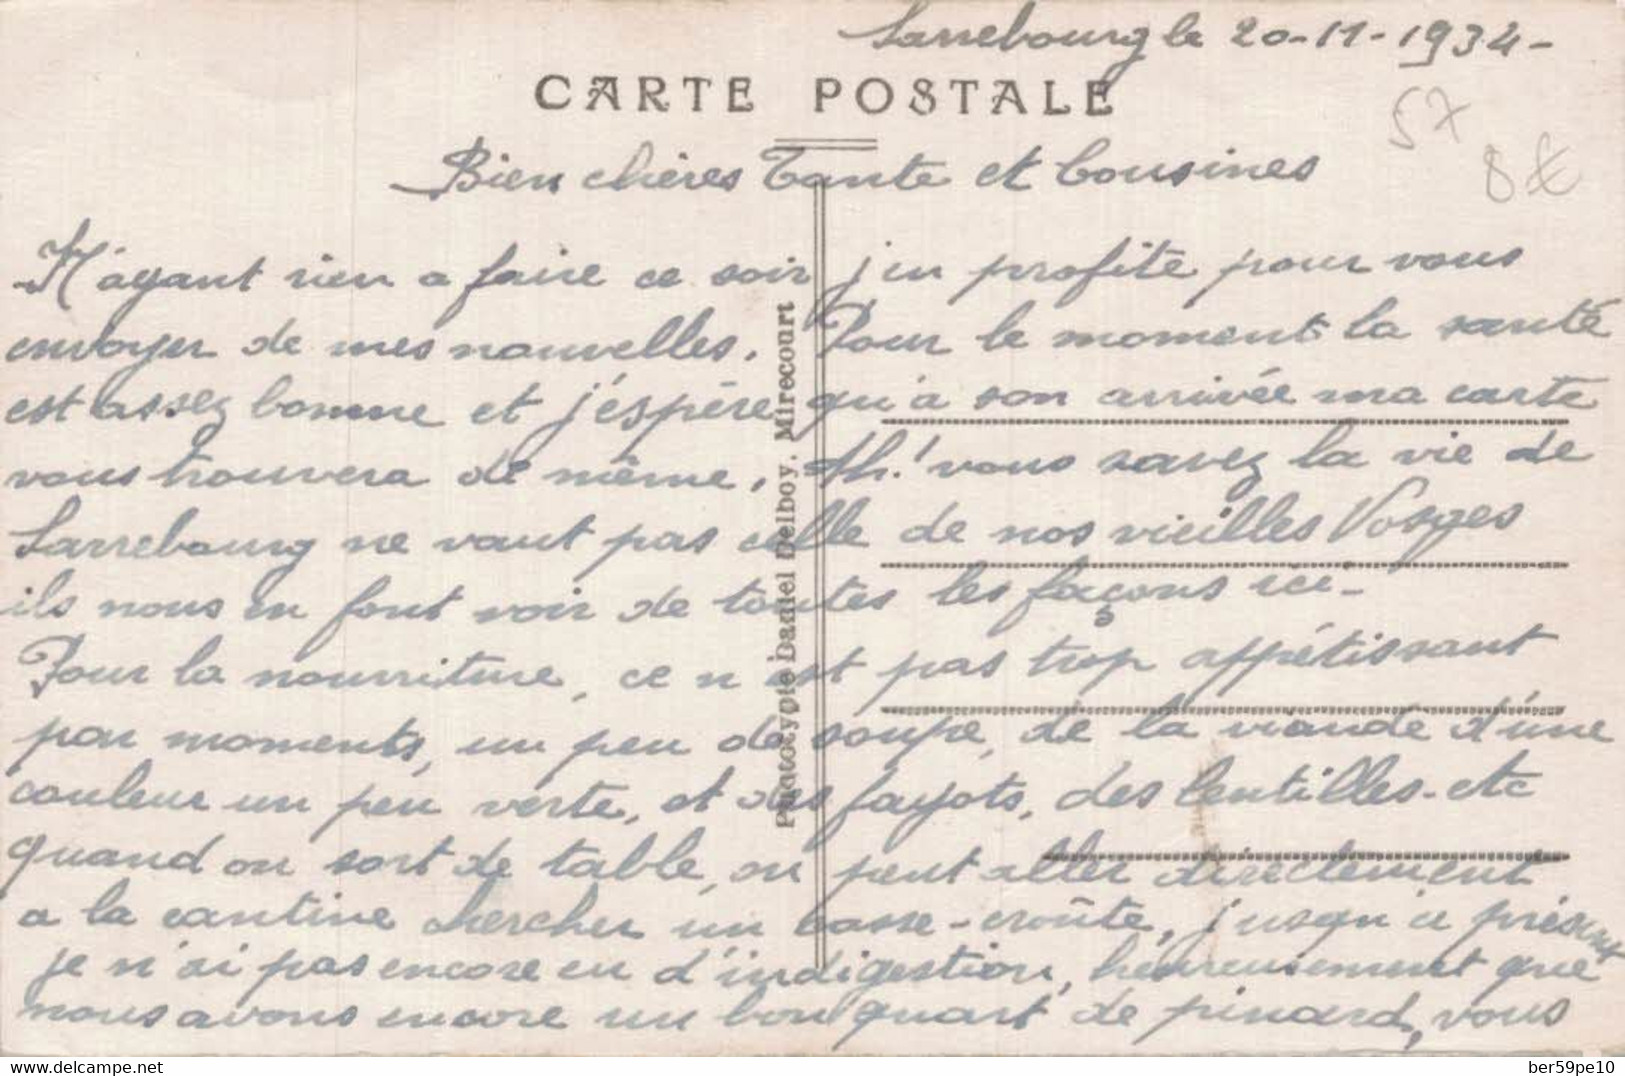 Sarrebourg le 20-11-1934-
CARTE POSTALE
57
8€
Bien chères Tante et Cousines
N'ayant rien a faire ce soir j'en profite pour vous
envoyer de mes nouvelles. Pour le moment la santé
est assez bonne et j'éspère qu'a son arrivée ma carte
vous trouvera de même. Ah! vous savez la vie de
Sarrebourg ne vaut pas celle de nos vieilles Vosges
ils nous en font voir de toutes les façons ici-
Pour la nourriture, ce n'est pas trop appétissant
par moments, un peu de soupe, de la viande d'une
couleur un peu verte, et des fayots, des lentilles-etc
quand on sort de table, on peut aller directement
a la cantine chercher un casse-croûte, jusqu'a présent
je n'ai pas encore eu d'indigestion, heureusement que
nous avons encore un bon quart de pinard, vous
Phototypie Daniel Delboy, Mirecourt
delcampe.net
ber59pe10